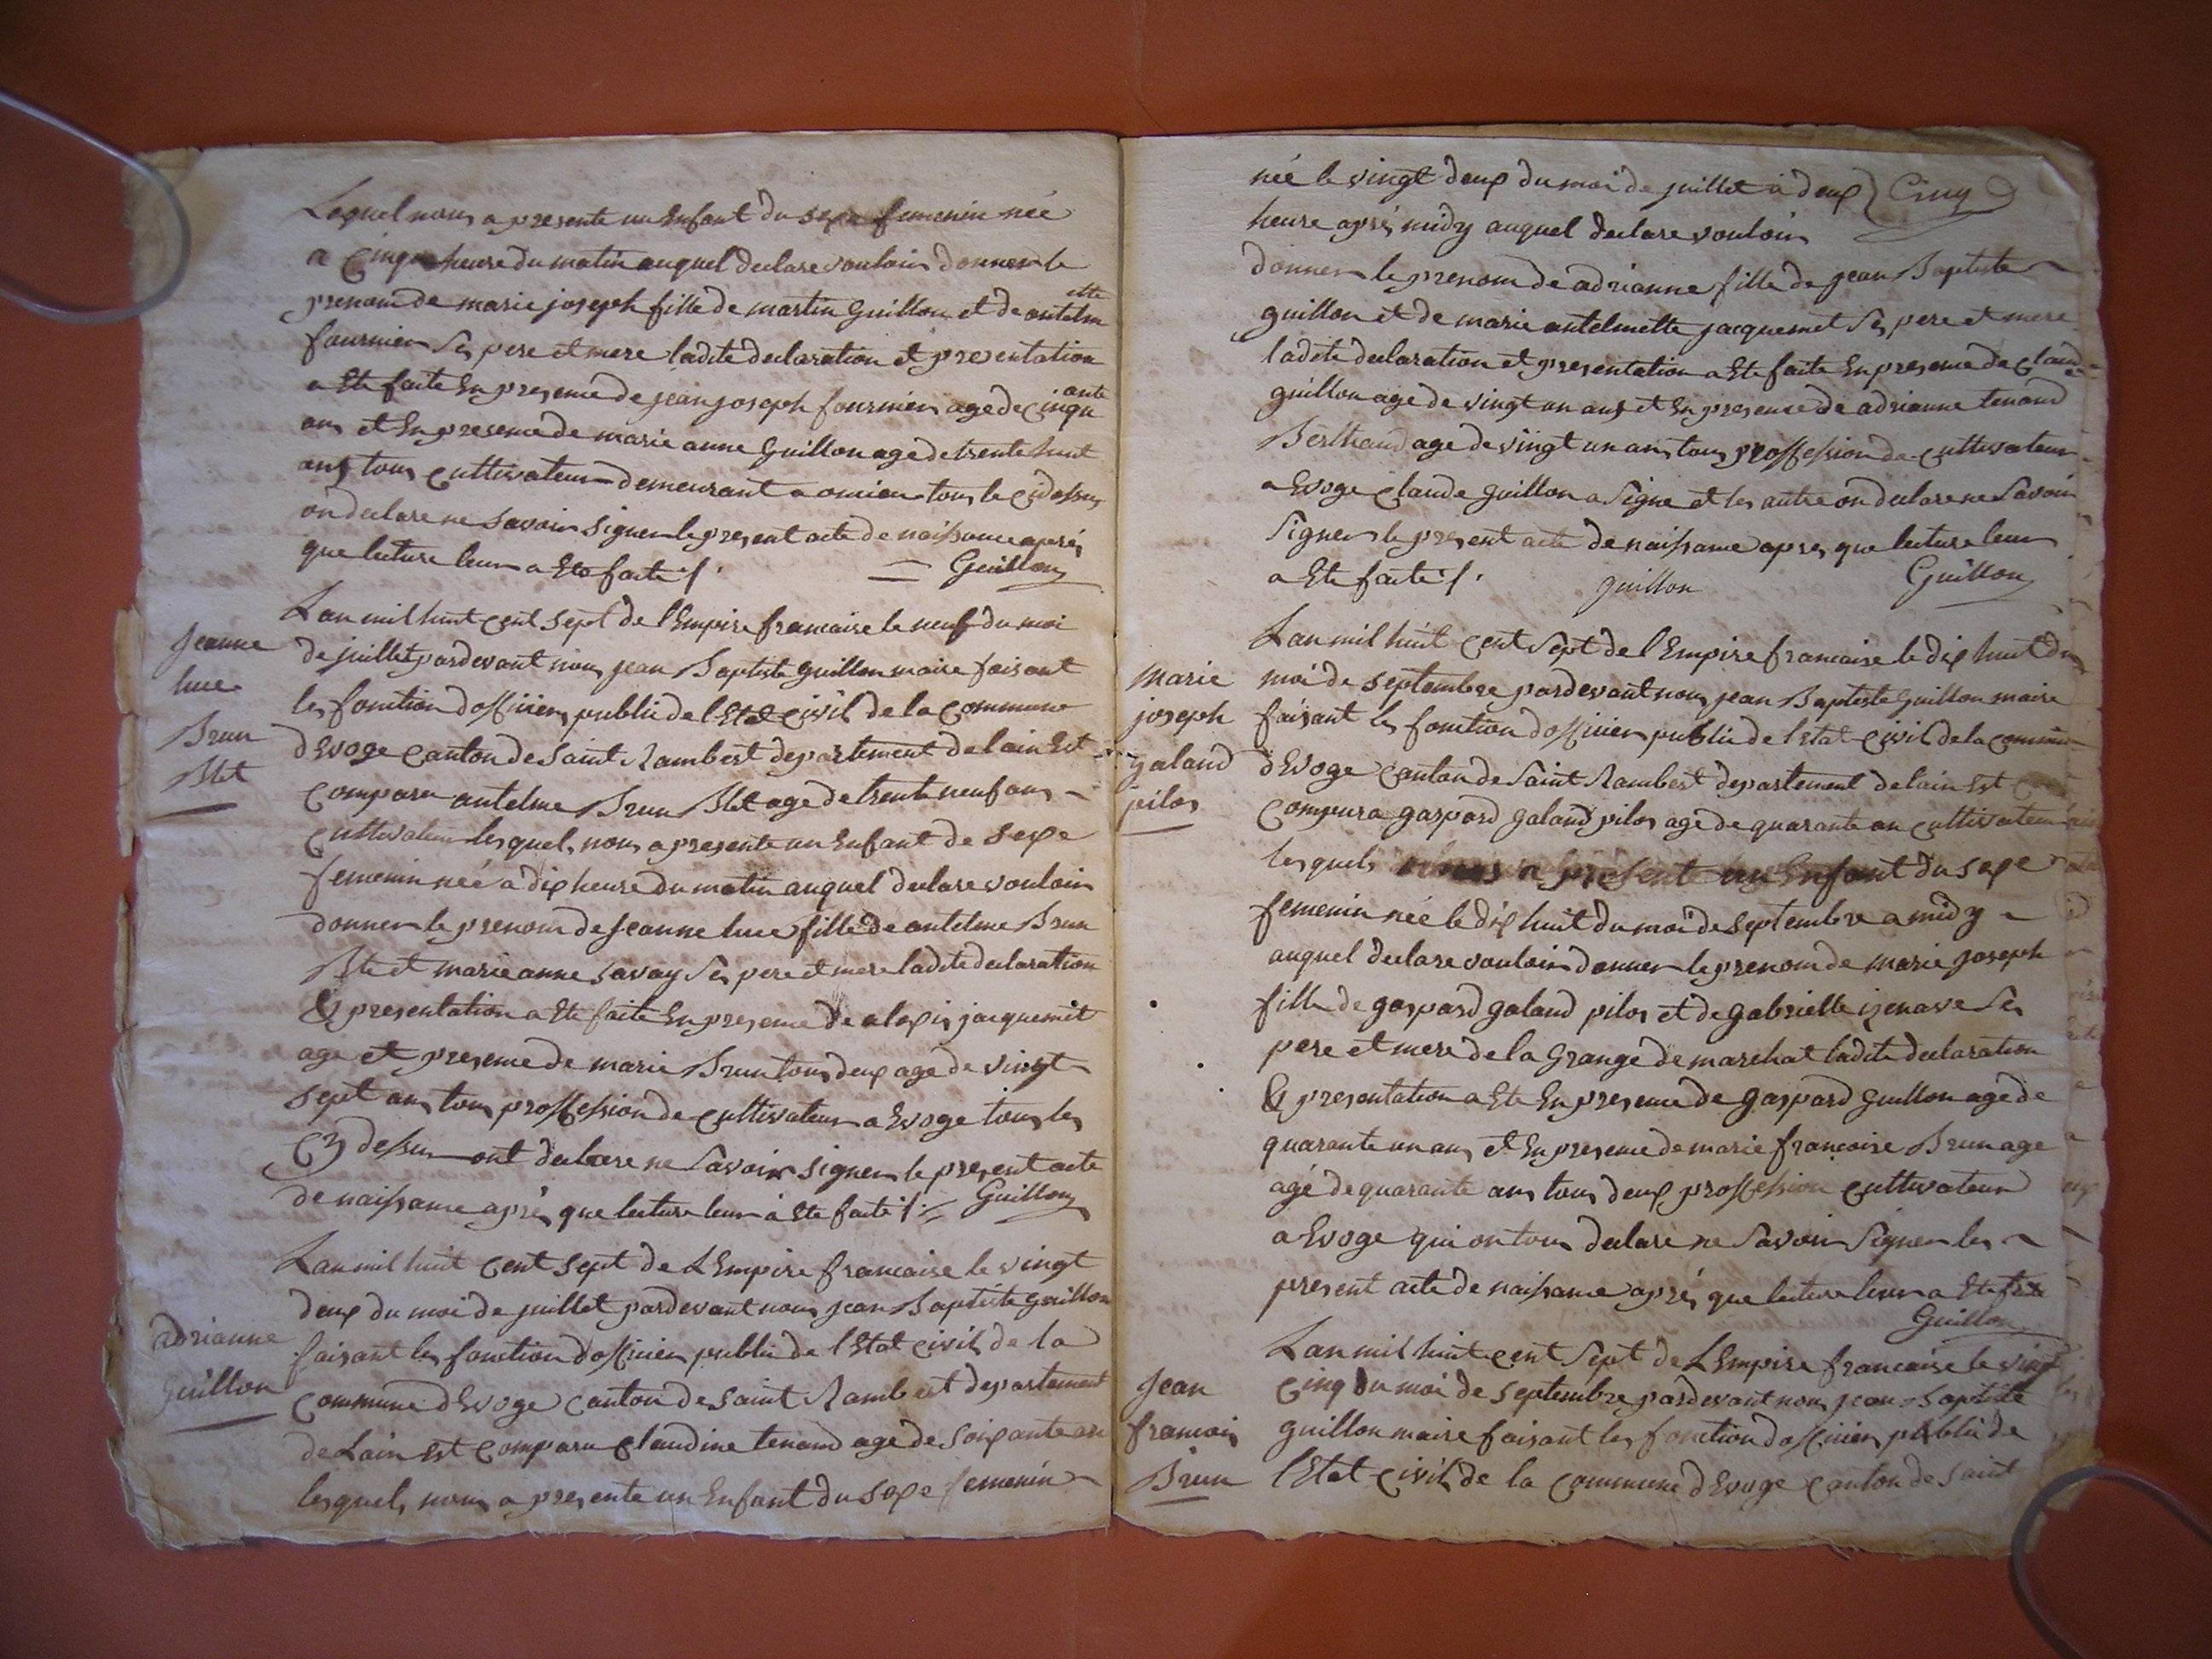 Lequel nous a presente un Enfant du sexe femenin née
a Cinq heure du matin auquel declare vouloir donner le
prenom de marie joseph fille de martin Guillon et de antelmette
fournier Ses pere et mere ladite declaration et presentation
a Ete faite En presence de jean joseph fournier age de cinquante
ans et En presence de marie anne Guillon age de trente huit
ans tous cultivateur demeurant a oncieu tous le cidessus
on declare ne savoir signer le present acte de naissance aprés
que lecture leur a Ete faite ;/. Guillon
Jeanne
luce
Brun
Blet
Lan mil huit cent sept de l'Empire francaise le neuf du moi
de juillet pardevant nous jean Baptiste guillon maire faisant
les fonction dofficier public de l'Etat civil de la commune
d'Evoge canton de Saint Rambert departement de lain Est
comparu antelme Brun Blet age de trente neuf ans
cultivateur lesquels nous a presente un Enfant de sexe
femenin née a dix heure du matin auquel declare vouloir
donner le prenom de Jeanne luce fille de antelme Brun
Blet et marie anne savay Ses pere et mere ladite declaration
& presentation a Ete faite En presence de alexis jacquemet
age et presence de marie Brun tous deux age de vingt
sept ans tous proffession de cultivateur a Evoge tous les
cy dessus ont declare ne Savoir signer le present acte
de naissance aprés que lecture leur a Ete faite ;/. Guillon
adrianne
guillon
Lan mil huit cent sept de L'Empire francaise le vingt
deux du moi de juillet pardevant nous jean Baptiste guillon
faisant les fonction dofficier public de l'Etat civil de la
commune d'Evoge canton de saint Rambert departement
de Lain est comparu claudine tenand age de soixante an
lesquels nous a presente un Enfant du sexe femenin
née le vingt deux du moi de juillet a deux } Cinq
heure aprés midy auquel declare vouloir
donner le prenom de adrianne fille de jean Baptiste
guillon et de marie antelmette jacquemet Ses pere et mere
ladite declaration et presentation a Ete faite En presence de claude
guillon age de vingt un ans et En presence de adrianne tenand
Berthaud age de vingt un ans tous proffession de cultivateur
a Evoge claude guillon a Signe et les autre on declare ne Savoir
Signer le present acte de naissance apres que lecture leur
a Ete faite ;/. guillon Guillon
marie
joseph
galand
pilos
Lan mil huit cent Sept de l'Empire francaise le dix huit du
moi de septembre pardevant nous jean Baptiste Guillon maire
faisant les fonction dofficier public de l'Etat civil de la commune
d'Evoge canton de Saint Rambert departement de lain Est
compura gaspard galand pilos age de quarante an cultivateur
lesquels nous a présente un Enfant du sexe
femenin née le dix huit du moi de septembre a midy
auquel declare vouloir donner le prenom de marie joseph
fille de gaspard galand pilos et de gabrielle izenave Ses
pere et mere de la Grange de marchat ladite declaration
& presentation a Ete En presence de gaspard guillon age de
quarante un ans et En presence de marie francoise Brun age
agé de quarante ans tous deux proffession cultivateur
a Evoge qui on tous declare ne Savoir Signer les
present acte de naissance aprés que lecture leur a Ete faite
Guillon
Jean
francois
Brun
Lan mil huit cent Sept de L'Empire francaise le vingt
cinq du moi de septembre pardevant nous jean Baptiste
guillon maire faisant les fonction dofficier public de
l'Etat civil de la commune d'Evoge canton de saint